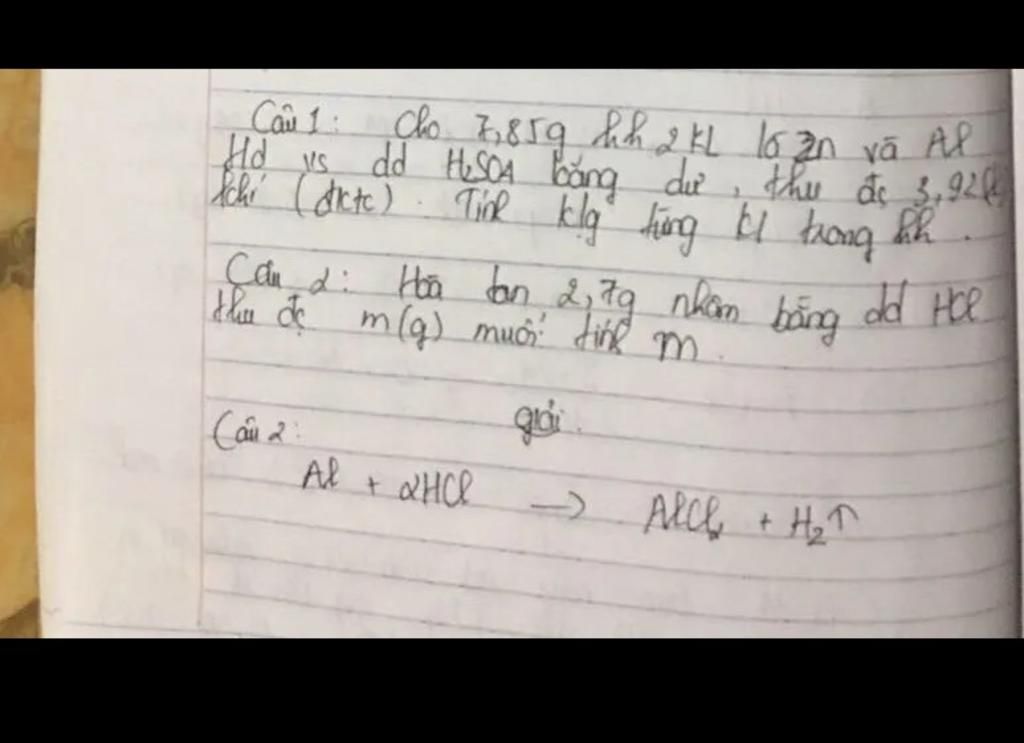 Câu 1: Cho 7,85g hh 2 KL là Zn và Al
td vs dd H₂SO4 bằng dư, thu đc 3,92(l)
khí (đktc). Tính klg từng kl trong hh.
Câu 2: Hoà tan 2,7g nhôm bằng dd HCl
thu đc m(g) muối tính m.
giải.
Câu 2:
Al + 2HCl -> AlCl₂ + H₂↑